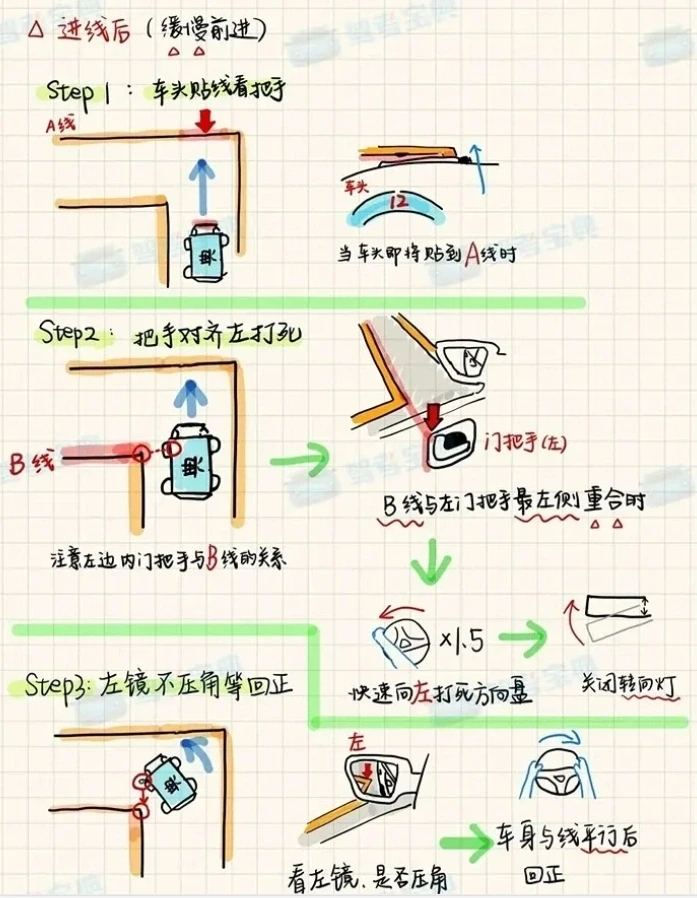 △ 进线后（缓慢前进）
△ △
Step 1：车头贴线看把手
A线
车头
12
乖
当车头即将贴到A线时
Step2：把手对齐左打死
B线
乖
门把手(左)
B线与左门把手最左侧重合时
△ △
注意左边内门把手与B线的关系
×1.5
快速向左打死方向盘
关闭转向灯
Step3：左镜不压角等回正
左
乖
看左镜、是否压角
车身与线平行后
回正